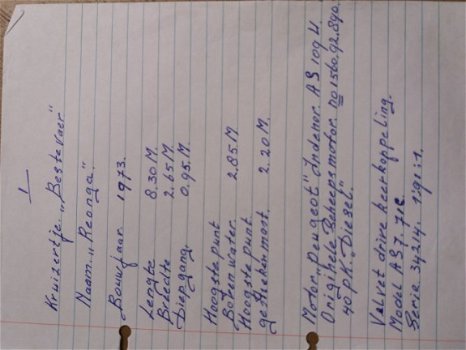 1
Kruizertje. „Bestevaer"
Naam. „Reonga".
Bouwjaar 1973.
Lengte 8.30 M.
Breedte 2.65 M.
Diepgang. 0.95 M.
Hoogste punt
Boven water. 2.85 M.
Hoogste punt
gestreken mast. 2.20 M.
Motor „Peugeot" Indenor. AS 109 U.
Originele Scheepsmotor. no 1560.92.890.
40 PK. „Diesel".
Velvet drive keerkoppeling.
Model AS7. 71C
Serie 3424. 1.91:1.